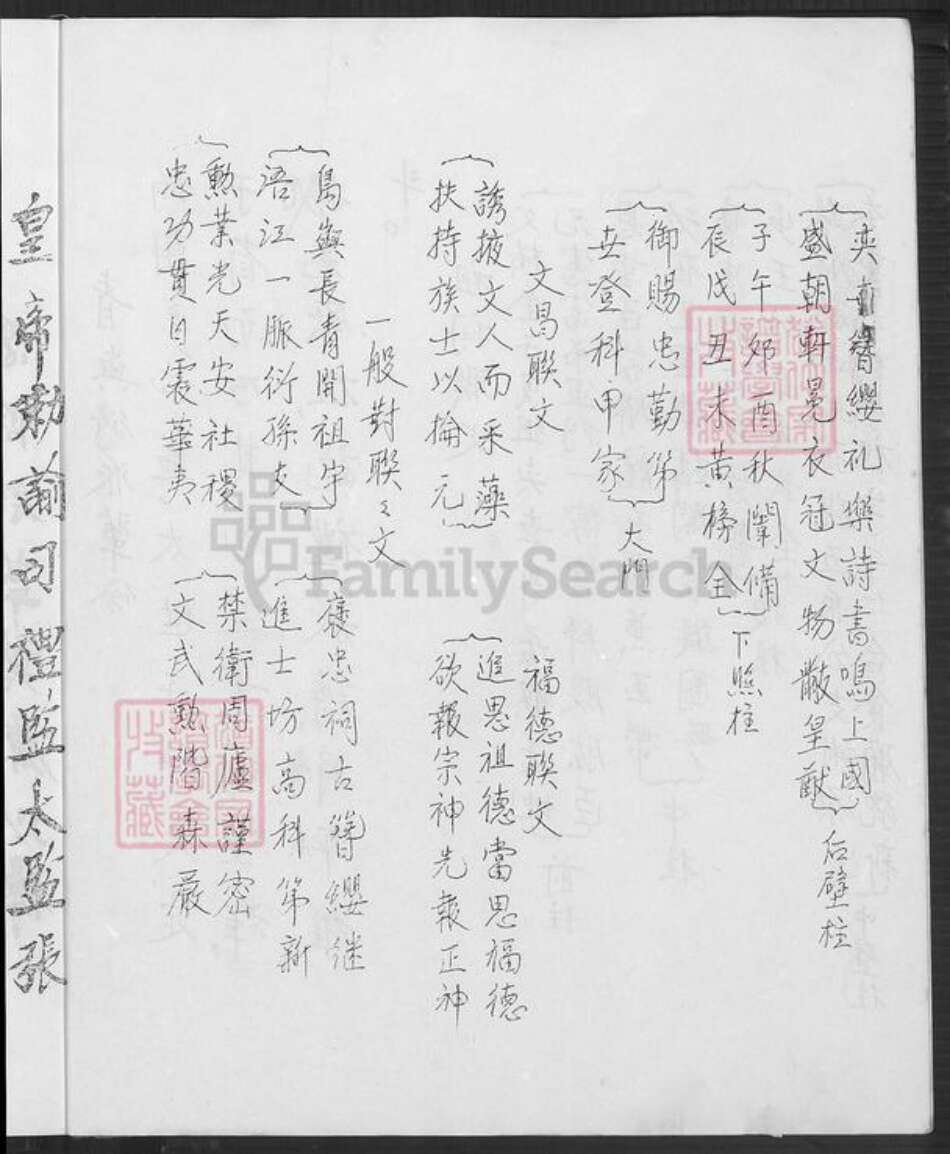 奕世簪纓礼樂詩書鳴上國
盛朝軒冕衣冠文物黻皇猷
后壁柱
子午夘酉秋闈備
辰戌丑未黃榜全
下照柱
御賜忠勤第
世登科甲家
大門
文昌联文
誘掖文人而采藻
扶持族士以掄元
福德联文
進思祖德當思福德
欲報宗神先報正神
一般對联之文
島嶼長青開祖宇
浯江一脈衍孫支
褒忠祠古簪纓继
進士坊高科第新
勲業光天安社稷
忠功貫日震華夷
禁衛周廬謹密
文武勲階森嚴
皇帝勅諭司禮監太監張
FamilySearch